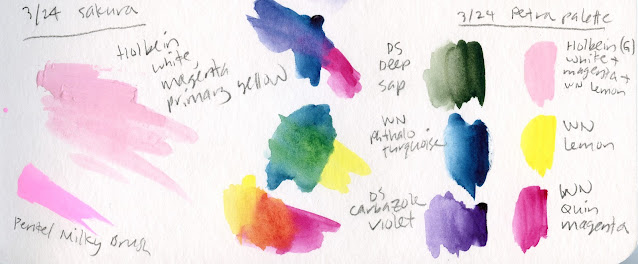 3/24 sakura
Holbein
white
magenta
primary yellow
Pentel Milky Brush
3/24 Petra palette
DS
Deep
sap
WN
phthalo
turquoise
DS
carbazole
violet
Holbein (G)
white +
magenta +
WN lemon
WN
Lemon
WN
Quin
magenta